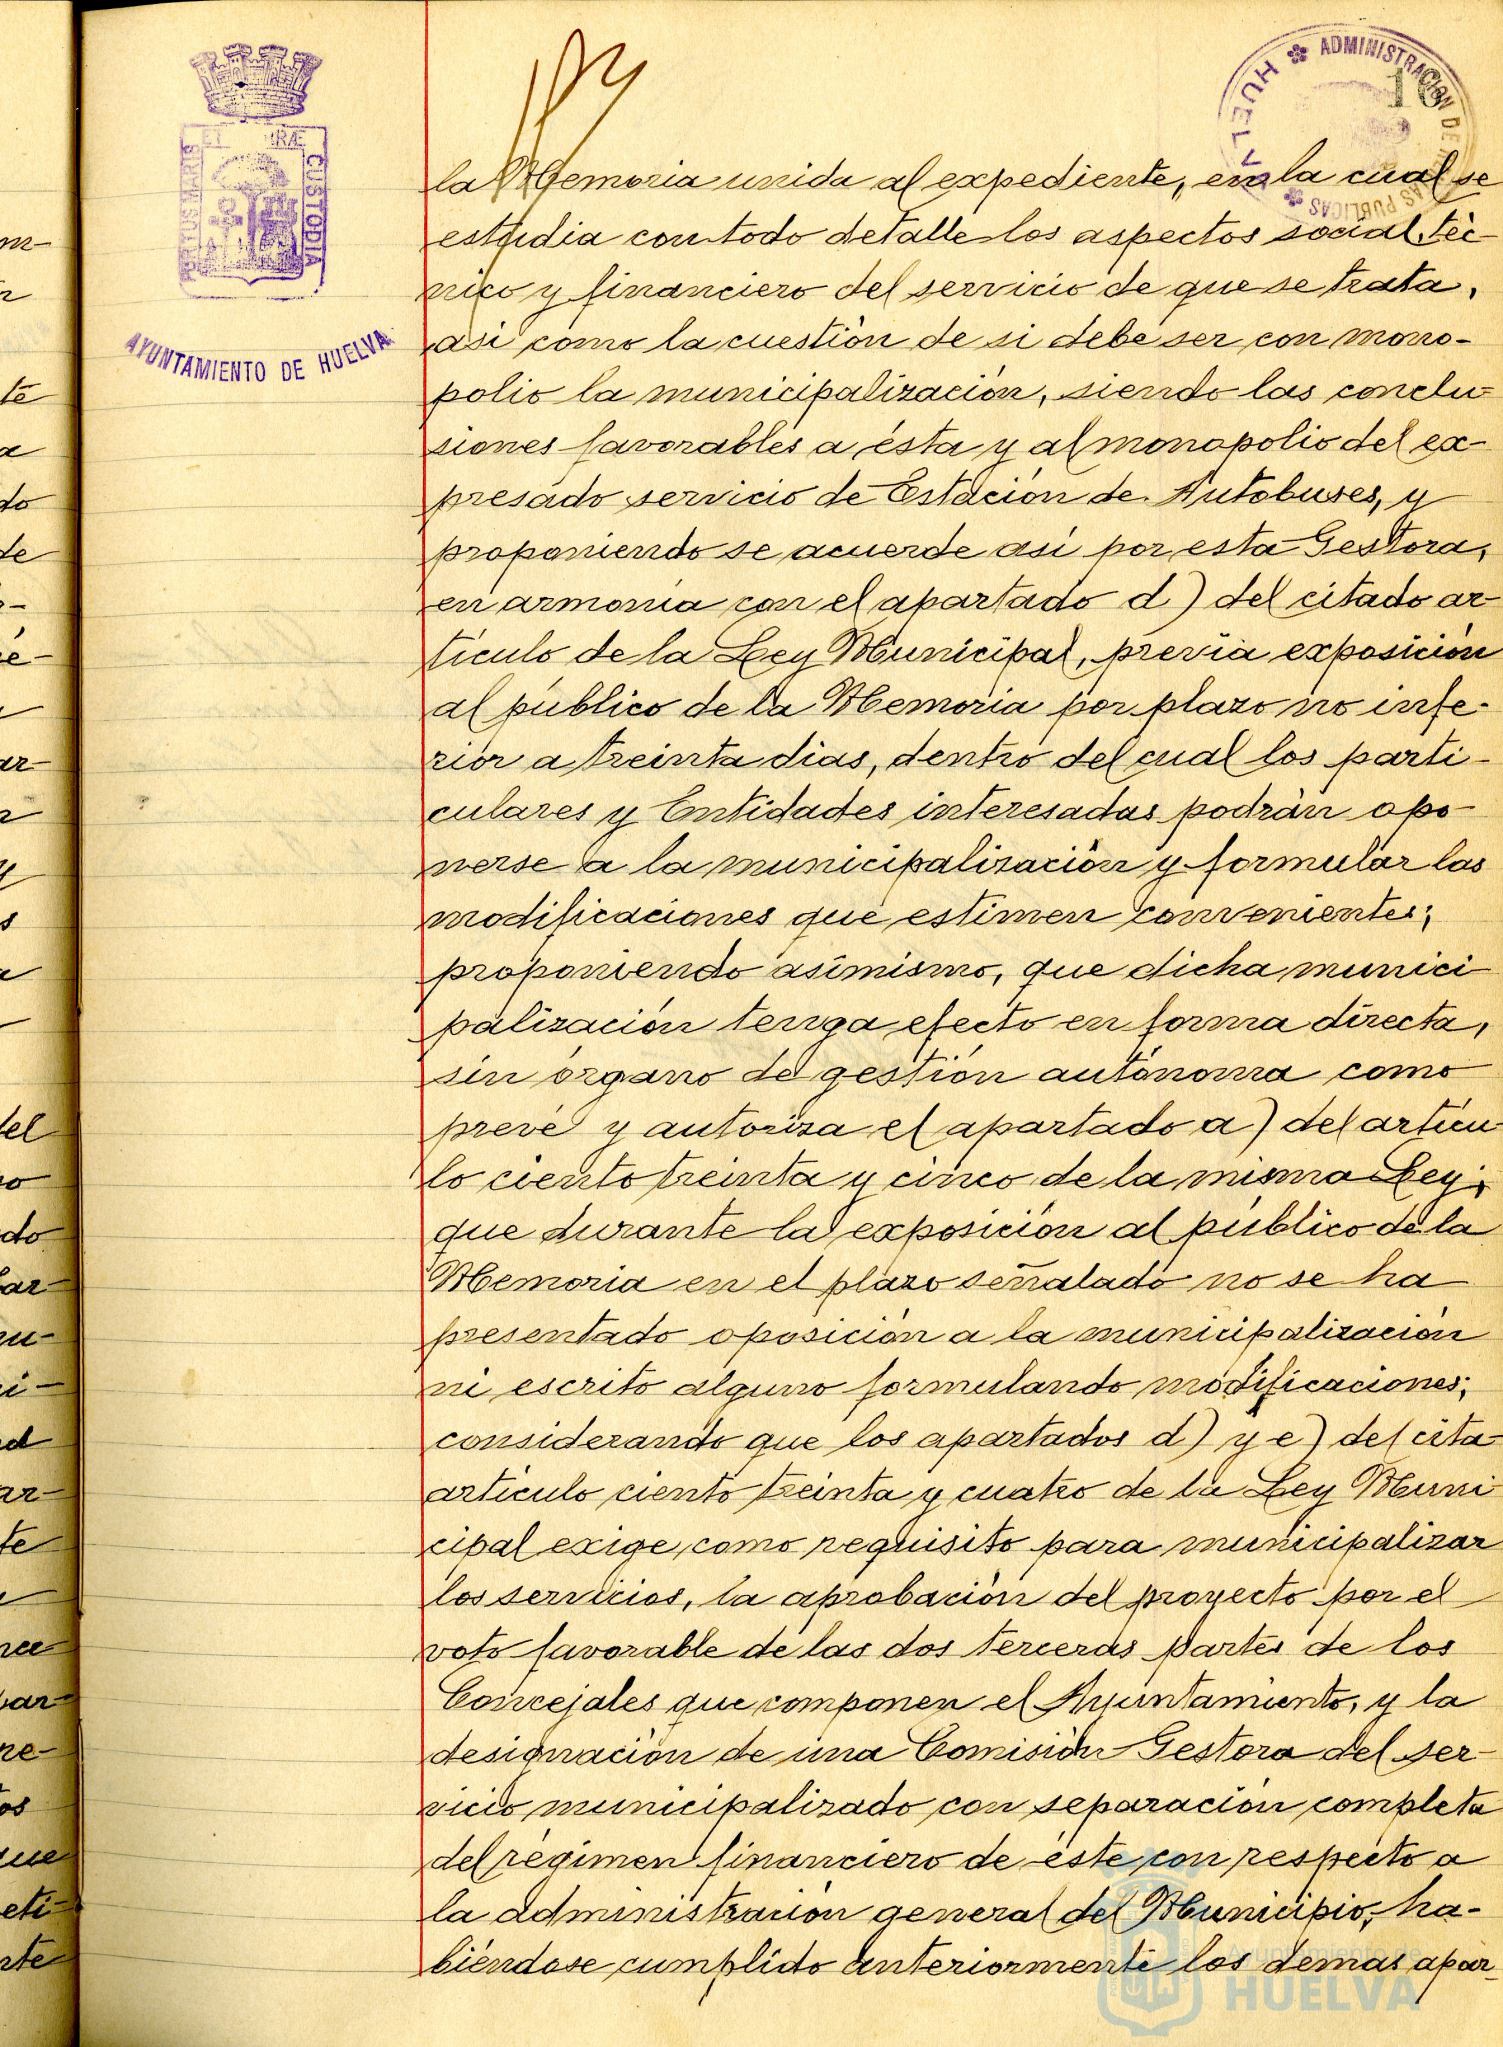 ADMINISTRACION DE
HUELVA
PUBLICAS
16
PORTUS MARIS
ET
RÆ
CUSTODIA
AYUNTAMIENTO DE HUELVA
la Memoria unida al expediente, en la cual se
estudia con todo detalle los aspectos social, téc-
nico y financiero del servicio de que se trata,
así como la cuestión de si debe ser con mono-
polio la municipalización, siendo las conclu-
siones favorables a ésta y al monopolio del ex-
presado servicio de Estación de Autobuses, y
proponiendo se acuerde así por esta Gestora,
en armonía con el apartado d) del citado ar-
tículo de la Ley Municipal, previa exposición
al público de la Memoria por plazo no infe-
rior a treinta días, dentro del cual los parti-
culares y Entidades interesadas podrán opo-
nerse a la municipalización y formular las
modificaciones que estimen convenientes;
proponiendo asímismo, que dicha munici-
palización tenga efecto en forma directa,
sin órgano de gestión autónoma como
prevé y autoriza el apartado a) del artícu-
lo ciento treinta y cinco de la misma Ley;
que durante la exposición al público de la
Memoria en el plazo señalado no se ha
presentado oposición a la municipalización
ni escrito alguno formulando modificaciones;
considerando que los apartados d) y e) del cita-
artículo ciento treinta y cuatro de la Ley Muni
cipal exige como requisito para municipalizar
los servicios, la aprobación del proyecto por el
voto favorable de las dos terceras partes de los
Concejales que componen el Ayuntamiento, y la
designación de una Comisión Gestora del ser-
vicio municipalizado con separación completa
del régimen financiero de éste con respecto a
la administración general del Municipio, ha-
biéndose cumplido anteriormente los demas apar-
Ayuntamiento de
HUELVA